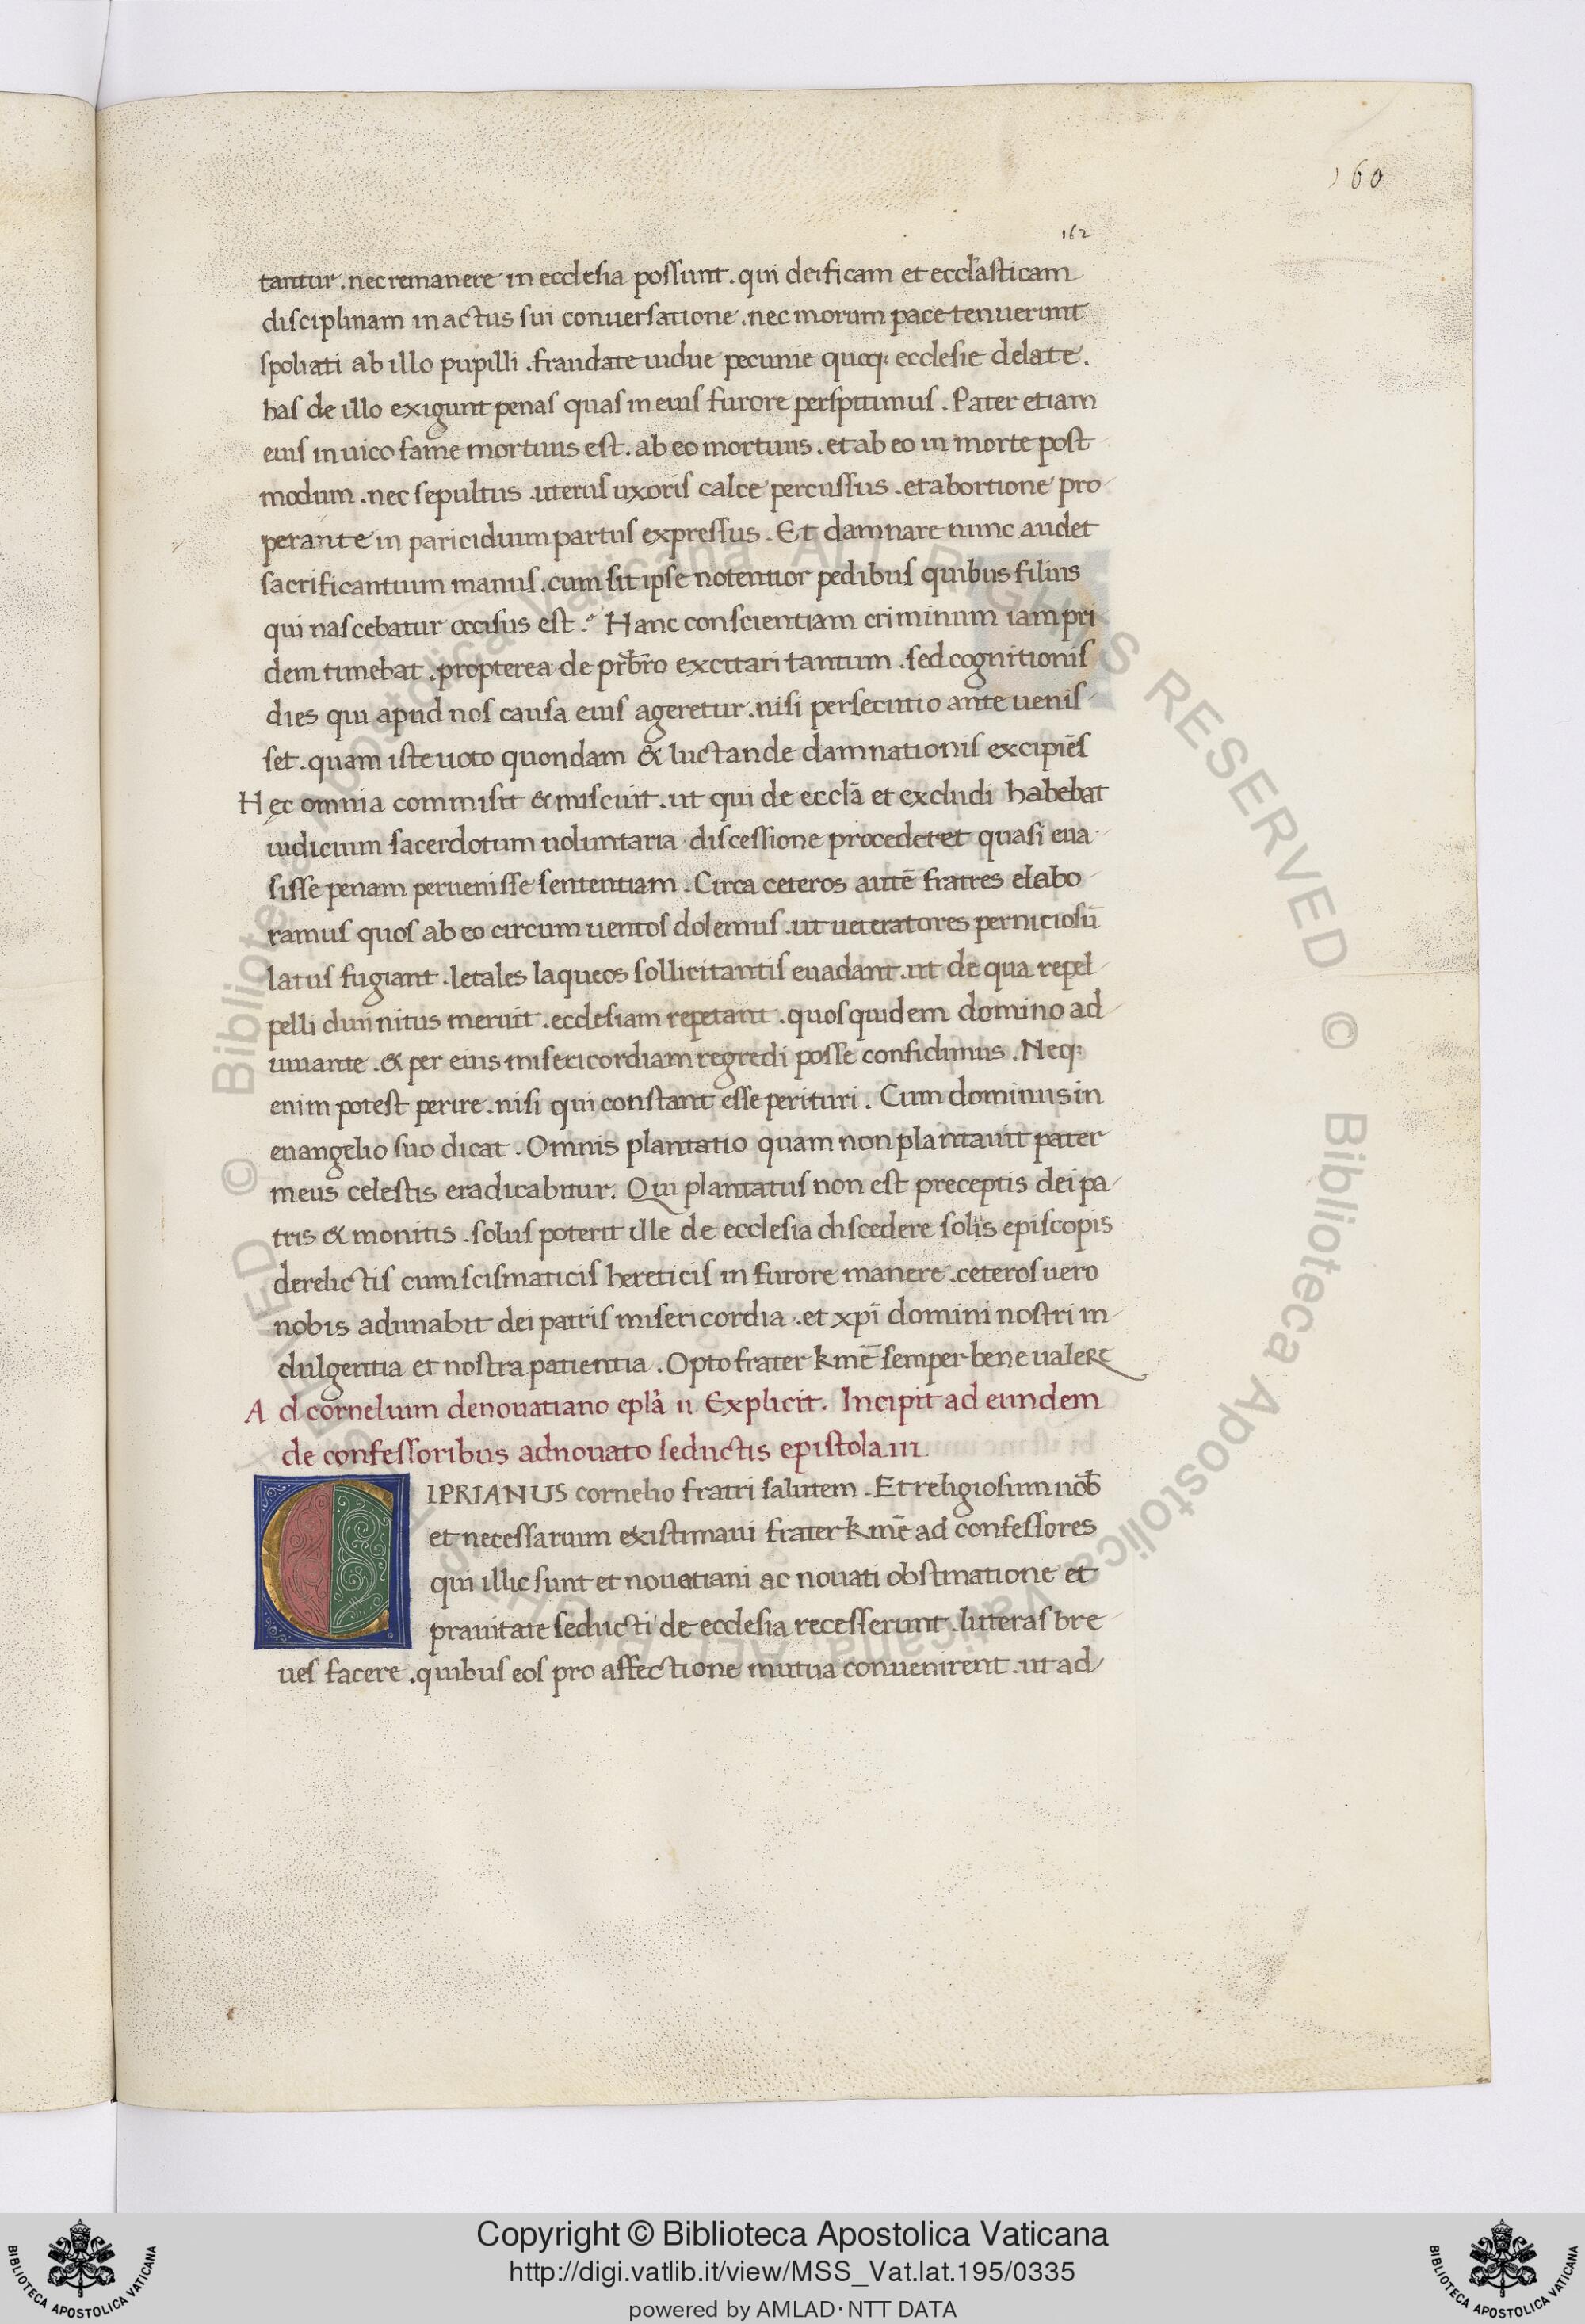 160
162
tantur . nec remanere in ecclesia possunt . qui deificam et eccl̄asticam
disciplinam in actus sui conuersatione . nec morum pace tenuerunt
spoliati ab illo pupilli . fraudate uidue pecunie quoq; ecclesie delate .
has de illo exigunt penas quas in eius furore perspitimus . Pater etiam
eius in uico fame mortuus est . ab eo mortuus . et ab eo in morte post
modum . nec sepultus . uterus uxoris calce percussus . et abortione pro
perante in paricidium partus expressus . Et damnare nunc audet
sacrificantium manus . cum sit ipse notentior pedibus quibus filius
qui nascebatur occisus est . Hanc conscientiam criminum iam pri
dem timebat . propterea de prb̄ro excitari tantum . sed cognitionis
dies qui apud nos causa eius ageretur . nisi persecutio ante uenis
set . quam iste uoto quondam & luctande damnationis excipiēs
Hęc omnia commisit & miscuit . ut qui de ecclā et excludi habebat
iudicium sacerdotum uoluntaria discessione procederet quasi eua
sisse penam peruenisse sententiam . Circa ceteros autē fratres elabo
ramus quos ab eo circumuentos dolemus . ut ueteratores perniciosū
latus fugiant . letales laqueos sollicitantis euadant . ut de qua repel
pelli diuinitus meruit . ecclesiam repetant . quos quidem domino ad
iuuante . & per eius misericordiam regredi posse confidimus . Neq;
enim potest perire . nisi qui constant esse perituri . Cum dominus in
euangelio suo dicat . Omnis plantatio quam non plantauit pater
meus celestis eradicabitur . Qui plantatus non est preceptis dei pa
tris & monitis . solus poterit ille de ecclesia discedere solis episcopis
derelictis cum scismaticis hereticis in furore manere . ceteros uero
nobis adunabit dei patris misericordia . et xpī domini nostri in
dulgentia et nostra patientia . Opto frater kmē semper bene ualere
Ad cornelium de nouatiano eplā ii Explicit . Incipit ad eundem
de confessoribus ad nouato seductis epistola iii
CIPRIANUS cornelio fratri salutem . Et religiosum nob̄
et necessarium existimaui frater kmē ad confessores
qui illic sunt et nouatiani ac nouati obstinatione et
prauitate seducti de ecclesia recesserunt . litteras bre
ues facere . quibus eos pro affectione mutua conuenirent . ut ad
© Biblioteca Apostolica Vaticana ALL RIGHTS RESERVED © Biblioteca Apostolica Vaticana ALL RIGHTS RESERVED
Copyright © Biblioteca Apostolica Vaticana
http://digi.vatlib.it/view/MSS_Vat.lat.195/0335
powered by AMLAD · NTT DATA
BIBLIOTECA APOSTOLICA VATICANA
BIBLIOTECA APOSTOLICA VATICANA